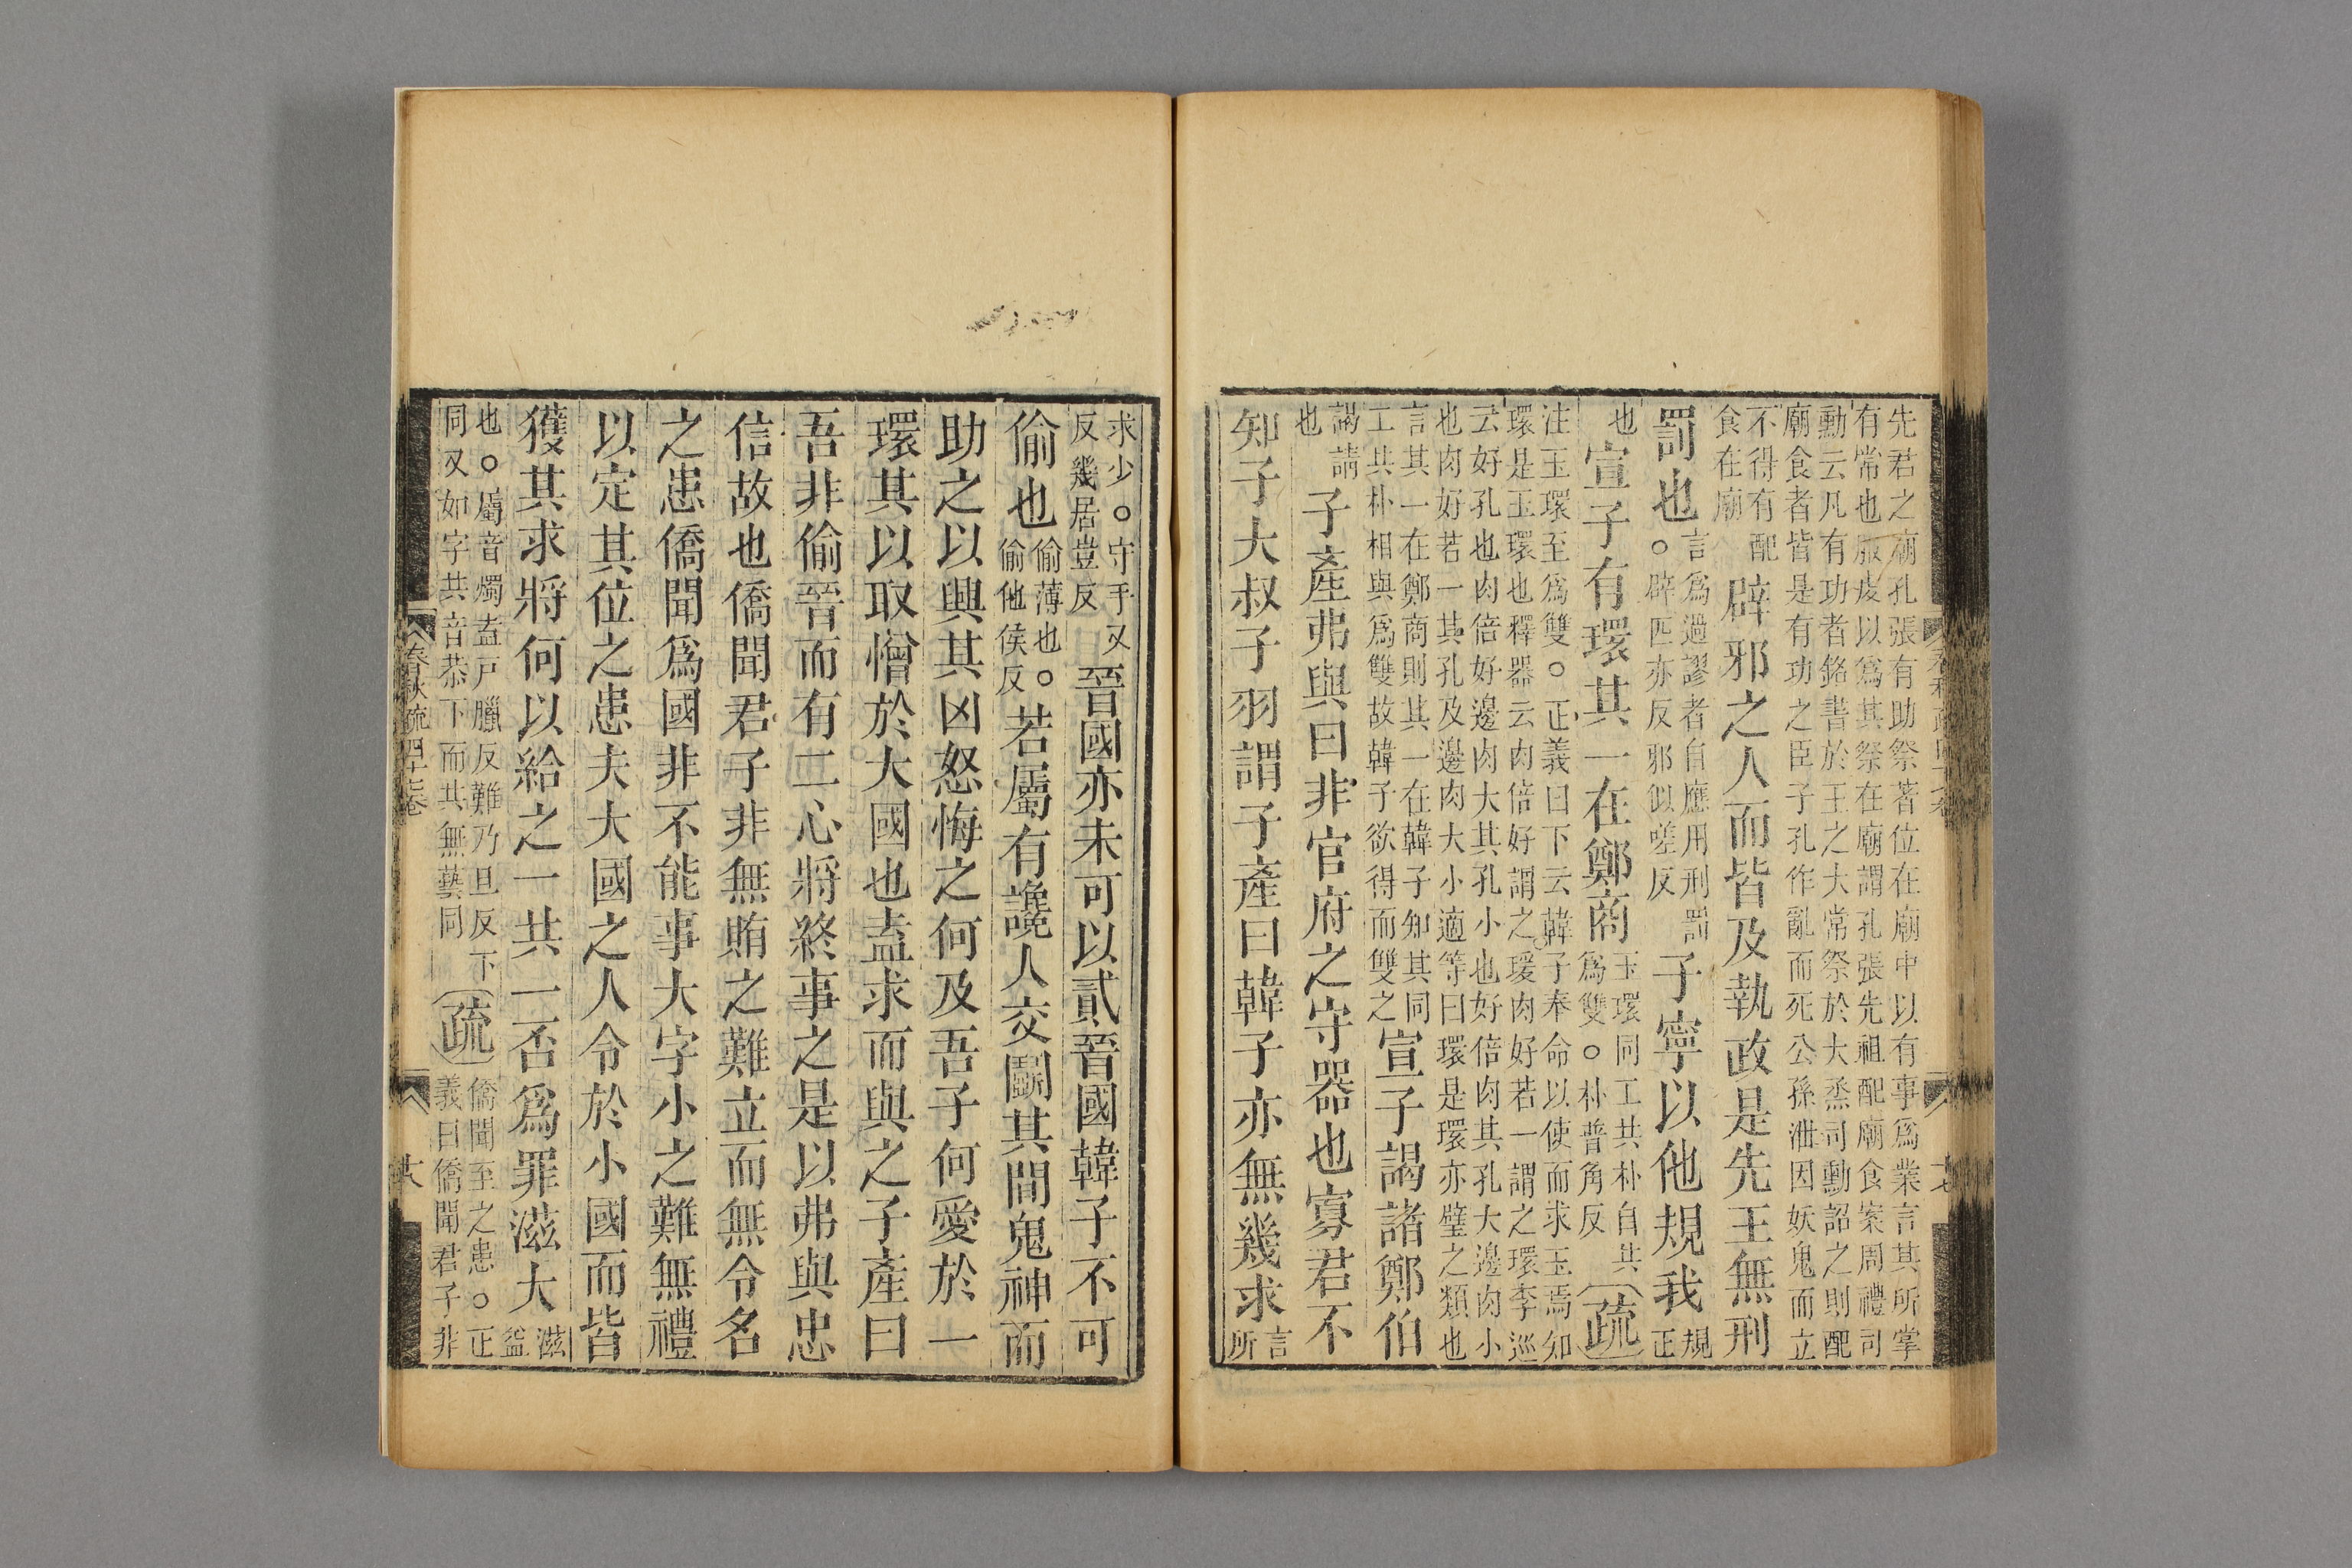 先君之廟孔張有助祭著位在廟中以有事爲業言其所掌
有常也脤皮以爲其祭在廟謂孔張先祖配廟食案周禮司
勳云凡有功者銘書於王之大常祭於大烝司勳詔之則配
廟食者皆是有功之臣子孔作亂而死公孫泄因妖鬼而立
不得有配食在廟辟邪之人而皆及執政是先王無刑
罰也言爲過謬者自應用刑罰○辟匹亦反邪似嗟反子寧以他規我規正
也宣子有環其一在鄭商玉環同工共朴自共爲雙○朴普角反疏
注玉環至爲雙○正義曰下云韓子奉命以使而求玉焉知
環是玉環也釋器云肉倍好謂之瑗肉好若一謂之環李巡
云好孔也肉倍好邊肉大其孔小也好倍肉其孔大邊肉小
也肉好若一其孔及邊肉大小適等曰環是環亦璧之類也
言其一在鄭商則其一在韓子知其同工共朴相與爲雙故韓子欲得而雙之宣子謁諸鄭伯
謁請也子產弗與曰非官府之守器也寡君不
知子大叔子羽謂子產曰韓子亦無幾求言所
求少○守手又反幾居豈反晉國亦未可以貳晉國韓子不可
偷也偷薄也○偷他侯反若屬有讒人交鬭其間鬼神而
助之以興其凶怒悔之何及吾子何愛於一
環其以取憎於大國也盍求而與之子產曰
吾非偷晉而有二心將終事之是以弗與忠
信故也僑聞君子非無賄之難立而無令名
之患僑聞爲國非不能事大字小之難無禮
以定其位之患夫大國之人令於小國而皆
獲其求將何以給之一共一否爲罪滋大滋益
也○屬音燭盍戶臘反難乃旦反下同又如字共音恭下而共無藝同疏僑聞至之患○正義曰僑聞君子非
春秋疏四十七卷